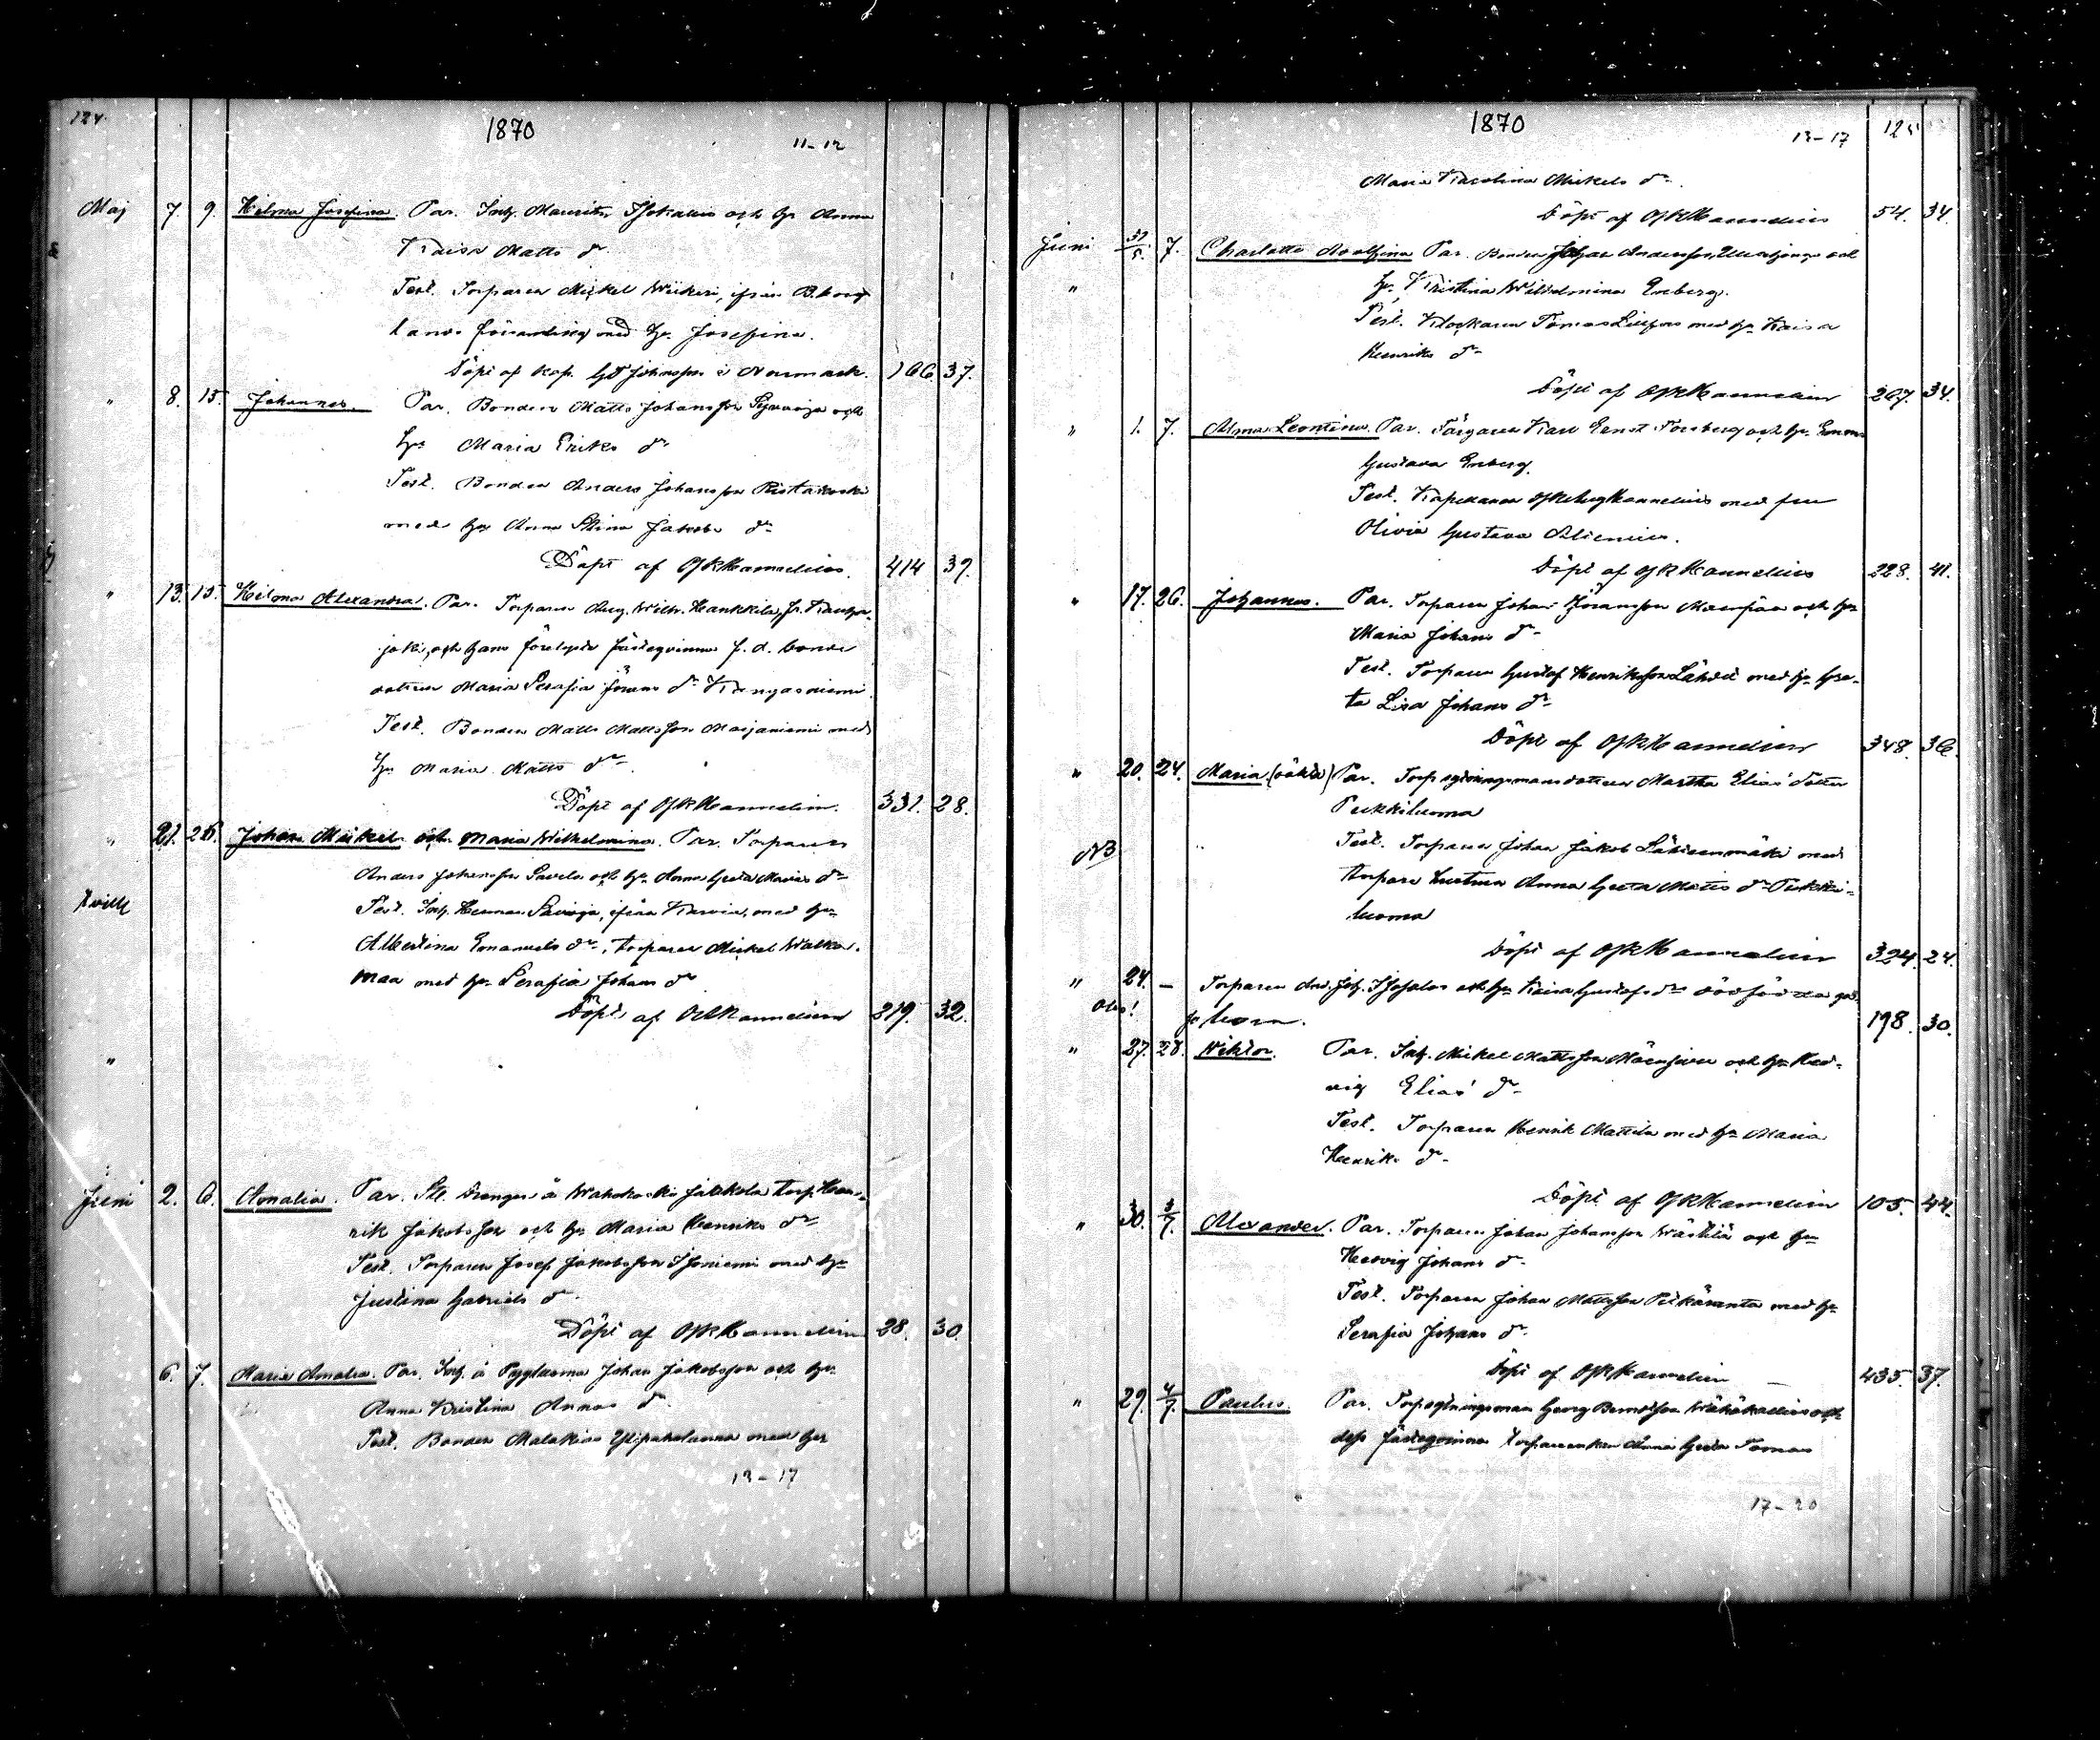 124
1870
11-12
Maj 7. 9. Hilma Josefina. Par. Inh. Mauritz Isokallio och hu Anna
Kaisa Matts dr
Test. Torparen Mickel Wiikeri, ifrån B.borg
lands församling med hu Josefina.
Döpt af kap. Johnsson i Norrmark. 166. 37.
" 8. 15. Johannes. Par. Bonden Matts Johansson och
hu Maria Eriks dr
Test. Bonden Anders Johansson Ristakoski
med hu Anna Stina Jakobs dr
Döpt af OJRKannelius. 414 39.
" 13. 15. Hilma Alexandra. Par. Torparen Aug. Wilh. Hankkila, fr. Kauha-
joki, och hans förelofvade fästeqvinna f. d. bonde
dottren Maria Serafia Görans dr Kangasniemi.
Test. Bonden Matts Mattsson Marjaniemi med
hu Maria Matts dr
Döpt af OJRKannelius. 331. 28.
" 21. 26. Johan Mickel och Maria Wilhelmina. Par. Torparen
Anders Johansson Savela och hu Anna Greta Marias dr
tvill
Test. Inh. Herman Savioja, ifrån Karvia, med hu
Albertina Emanuels dr, torparen Mickel Walka-
maa med hu Serafia Johans dr
Döpt af OJRKannelius 319. 32.
"
Juni 2. 6. Amalia. Par. Drengen å Wahokoski Jakkola torp Hen-
rik Jakobsson och hu Maria Henriks dr
Test. Torparen Josef Jakobsson Isoniemi med hu
Justina Gabriels dr
Döpt af OJRKannelius 28. 30.
6. 7. Maria Amalia. Par. Inh. å Johan Jakobsson och hu
Anna Kristina Annas dr.
Test. Bonden Malakias med hu
13-17
1870
13-17
125
Maria Karolina Mickels dr.
Döpt af OJRKannelius 54. 34.
Juni 31/5. 7. Charlotta Adolfina Par. Bonden Johan Andersson och
" hu Kristina Wilhelmina Enberg.
Test. Klockaren Tomas Liljfors med hu Kaisa
Henriks dr
Döpt af OJRKannelius 267. 34.
" 1. 7. Alma Leontina. Par. Färgaren Karl Ernst Forsberg och hu Emma
Gustava Enberg.
Test. Kapellanen Kannelius med fru
Olivia Gustava Alcenius.
Döpt af OJRKannelius 228. 41.
" 17. 26. Johannes. Par. Torparen Johan Göransson Mäenpää och hu
Maria Johans dr
Test. Torparen Gustaf Henriksson Lähde med hu Gre-
ta Lisa Johans dr
Döpt af OJRKannelius 348. 36.
" 20. 24. Maria (oäkta) Par. Torpsytningsmansdottren Martha Elias' dotter
Pukkiluoma
NB
Test. Torparen Johan Jakob Lähteenmäki med
torpare hustrun Anna Greta Matts dr Pukki-
luoma
Döpt af OJRKannelius 324. 24.
" 24. – Torparen And. Joh. Isotalos och hu Kaisa Gustafs dr dödfödda
Obs!
198. 30.
" 27. 28. Wiktor. Par. Inh. Mickel Mattsson och hu Hed-
vig Elias' dr
Test. Torparen Henrik Mattila med hu Maria
Henriks dr
Döpt af OJRKannelius 105. 44.
" 30. 3/7. Alexander. Par. Torparen Johan Johansson Wästilä och hu
Hedvig Johans dr
Test. Torparen Johan Mattsson Pitkäranta med hu
Serafia Johans dr
Döpt af OJRKannelius 435. 37.
" 29. 4/7. Paulus. Par. Torpsytningsman Georg Berndtsson Wähäkallio och
dess fästeqvinna torpareenkan Anna Greta Tomas
17-20